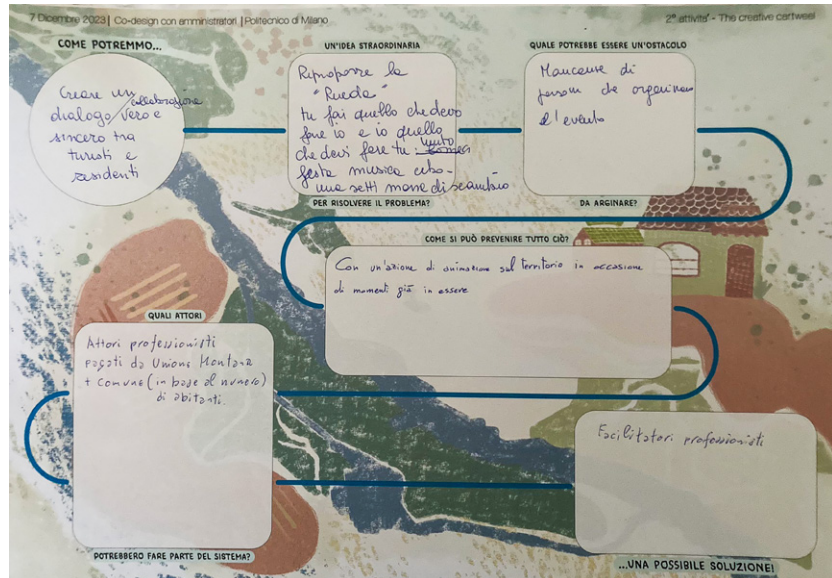 7 Dicembre 2023 | Co-design con amministratori | Politecnico di Milano
2° attivita' - The creative cartweel
COME POTREMMO...
Creare un
dialogo/collaborazione
vero e
sincero tra
turisti e
residenti
UN'IDEA STRAORDINARIA
Riproporre la
"Rueda"
tu fai quello che devo
fare io e io quello
che devi fare tu:
festa musica cibo -
una settimana di scambio
PER RISOLVERE IL PROBLEMA?
QUALE POTREBBE ESSERE UN'OSTACOLO
Mancanza di
persone che organizzano
l'evento
DA ARGINARE?
COME SI PUÒ PREVENIRE TUTTO CIÒ?
Con un'azione di animazione sul territorio in occasione
di momenti già in essere
QUALI ATTORI
Attori professionisti
pagati da Unione Montana
+ comune (in base al numero)
di abitanti.
POTREBBERO FARE PARTE DEL SISTEMA?
Facilitatori professionisti
...UNA POSSIBILE SOLUZIONE!